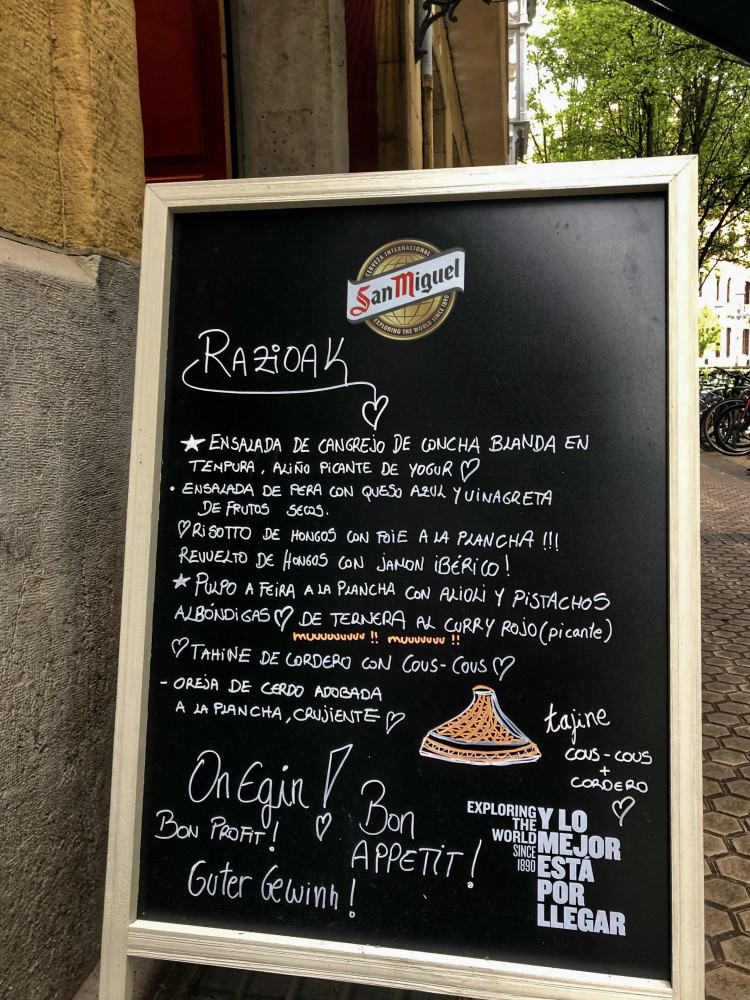 CERVEZA INTERNACIONAL
San Miguel
EXPLORING THE WORLD SINCE 1890
RAZIOAK
★ ENSALADA DE CANGREJO DE CONCHA BLANDA EN
TEMPURA, ALIÑO PICANTE DE YOGUR ♡
• ENSALADA DE PERA CON QUESO AZUL Y VINAGRETA
DE FRUTOS SECOS.
♡ RISOTTO DE HONGOS CON FOIE A LA PLANCHA !!!
REVUELTO DE HONGOS CON JAMON IBÉRICO !
★ PULPO A FEIRA A LA PLANCHA CON ALIOLI Y PISTACHOS
ALBÓNDIGAS ♡ DE TERNERA AL CURRY ROJO (picante)
muuuuuuuu !! muuuuuu !!
♡ TAHINE DE CORDERO CON COUS-COUS ♡
- OREJA DE CERDO ADOBADA
A LA PLANCHA, CRUJIENTE ♡
tajine
COUS-COUS
+
CORDERO
♡
On Egin !
BON PROFIT !
♡
Bon
APPETIT !
Guter Gewinn !
EXPLORING
THE
WORLD
SINCE
1890
Y LO
MEJOR
ESTÁ
POR
LLEGAR